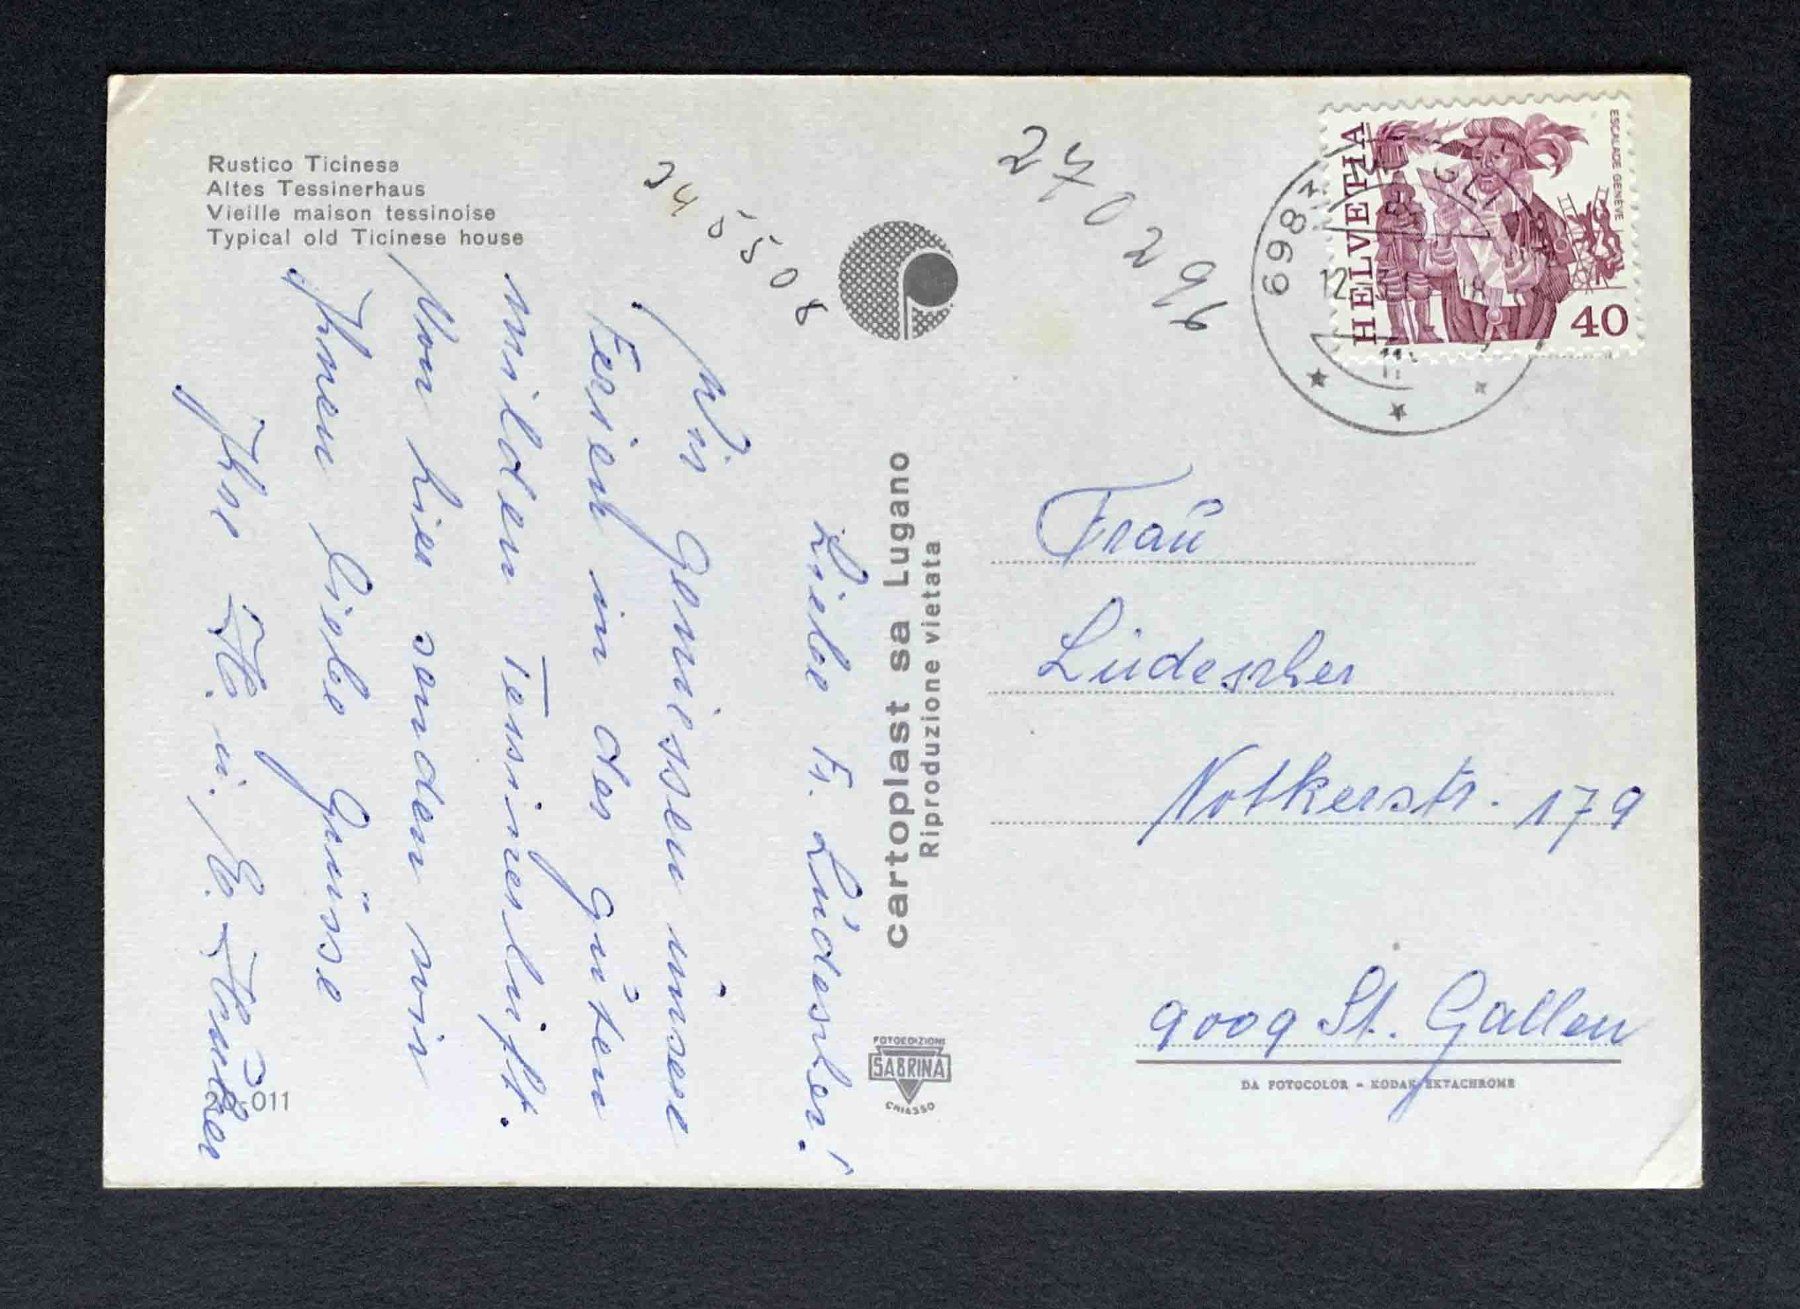 Rustico Ticinese
Altes Tessinerhaus
Vieille maison tessinoise
Typical old Ticinese house
24 55 08
270296
Liebe Fr. Lüdescher!
Wir geniessen unsere
Ferien in der guten
milden Tessinerluft.
Von hier senden wir
Ihnen liebe Grüsse
Ihre H. u. E.
-011
cartoplast sa Lugano
Riproduzione vietata
FOTOEDIZIONI
SABRINA
CHIASSO
HELVETIA
ESCALADE GENÈVE
40
6983
12
Frau
Lüdescher
Notkerstr. 179
9009 St. Gallen
DA FOTOCOLOR - KODAK EKTACHROME